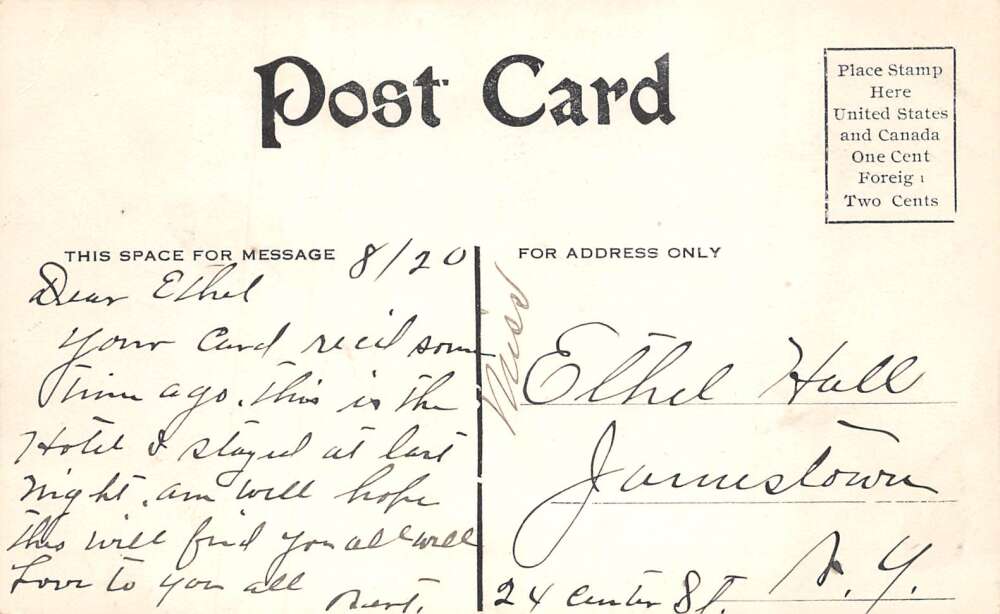 Post Card
Place Stamp
Here
United States
and Canada
One Cent
Foreig
Two Cents
THIS SPACE FOR MESSAGE
8/20
Dear Ethel
Your Card rec'd some
time ago. this is the
Hotel I stayed at last
night. am well hope
this will find you all well
Love to you all
Bert.
FOR ADDRESS ONLY
Miss
Ethel Hall
Jamestown
N.Y.
24 Center St.